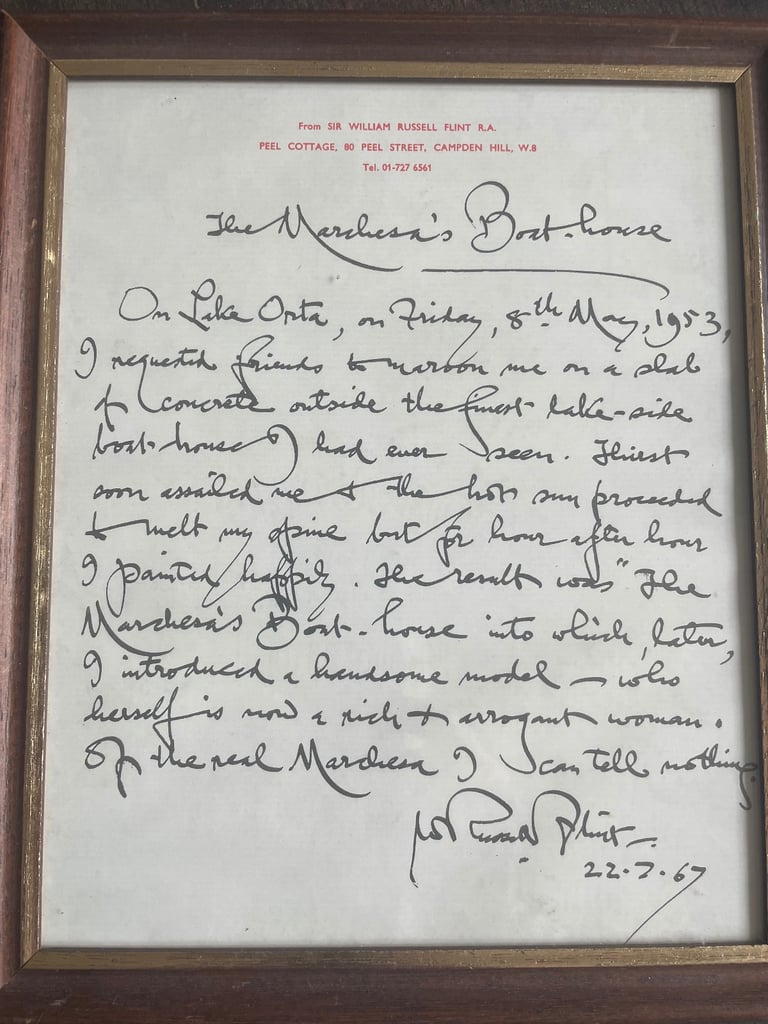 From SIR WILLIAM RUSSELL FLINT R.A.
PEEL COTTAGE, 80 PEEL STREET, CAMPDEN HILL, W.8
Tel. 01-727 6561
The Marchesa's Boat-house
On Lake Orta, on Friday, 8th May, 1953,
I requested friends to maroon me on a slab
of concrete outside the finest lake-side
boat-house I had ever seen. Thirst
soon assailed me & the hot sun proceeded
to melt my spine but for hour after hour
I painted happily. The result was "The
Marchesa's Boat-house into which, later,
I introduced a handsome model – who
herself is now a rich & arrogant woman.
Of the real Marchesa I can tell nothing.
W Russell Flint
22.7.67